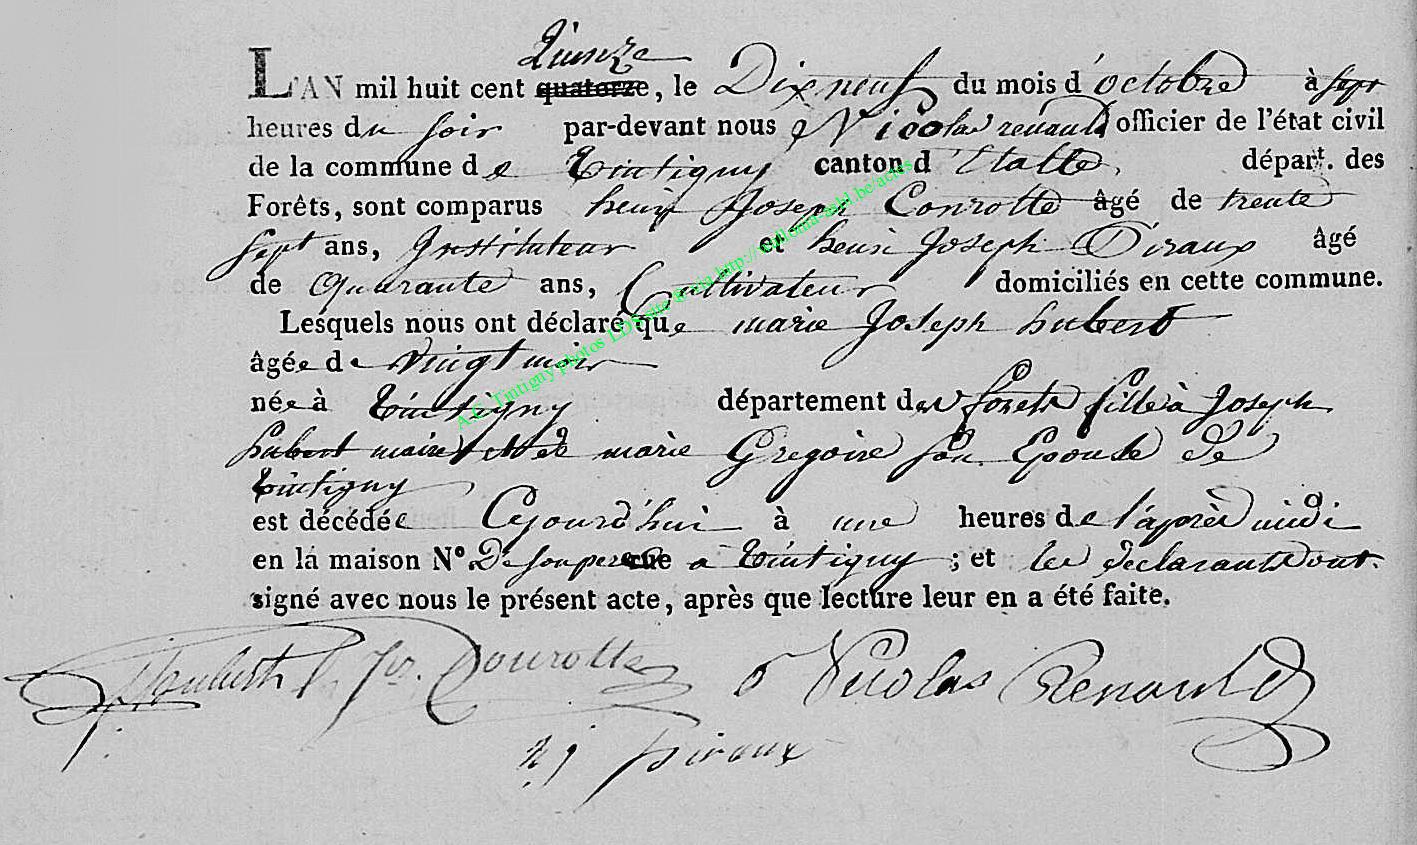 Quinze
L'AN mil huit cent quatorze, le Dix neuf du mois d'octobre à sept
heures du soir par-devant nous Nicolas renauld officier de l'état civil
de la commune de Tintigny canton d'Etalle, départ. des
Forêts, sont comparus henry Joseph Conrotte âgé de trente
sept ans, Instituteur et henri Joseph Piraux âgé
de Quarante ans, Cultivateur domiciliés en cette commune.
Lesquels nous ont déclaré que marie Joseph hubert
âgée de vingt mois
née à Tintigny département des forets fille à Joseph
hubert maire et de marie Gregoire son Epouse de
Tintigny
est décédée Cejourd'hui à une heures de l'après midi
en la maison N° De son pere rue à Tintigny ; et les declarants ont
signé avec nous le présent acte, après que lecture leur en a été faite.
h j Conrotte Nicolas Renauld
h j Piraux
A.C. Tintigny photos LDS site & via http://wallonia-asbl.be/actes